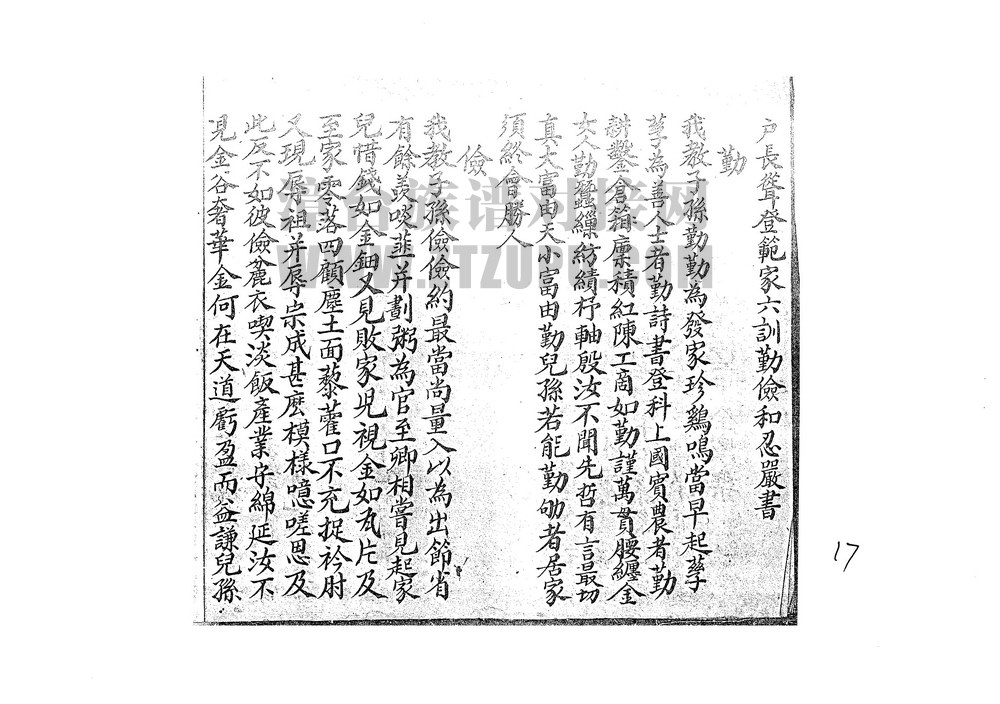 戶長聳登範家六訓勤儉和忍嚴書
勤
我教子孫勤勤為發家珍鷄鳴當早起孳
孳為善人士者勤詩書登科上國賓農者勤
耕鑿倉箱廪積紅陳工商如勤謹萬貫腰纏金
女人勤蠶繅紡績杼軸殷汝不聞先哲有言最切
真大富由天小富由勤兒孫若能勤劬者居家
須終會勝人
儉
我教子孫儉儉約最當尚量入以為出節省
有餘羨啖韮并劃粥為官至卿相嘗見起家
兒惜錢如金鈿又見敗家児視金如瓦片及
至家零落四顧塵土面藜藿口不充捉衿肘
又現辱祖并辱宗成甚麽模樣噫嗟思及
此反不如彼儉麄衣喫淡飯產業守綿延汝不
見金谷奢華金何在天道虧盈而益謙兒孫
17